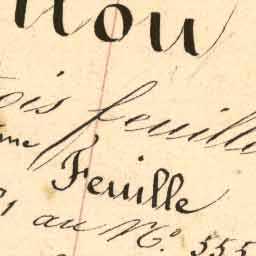 nou
ois feuille
me
Feuille
au No. 555